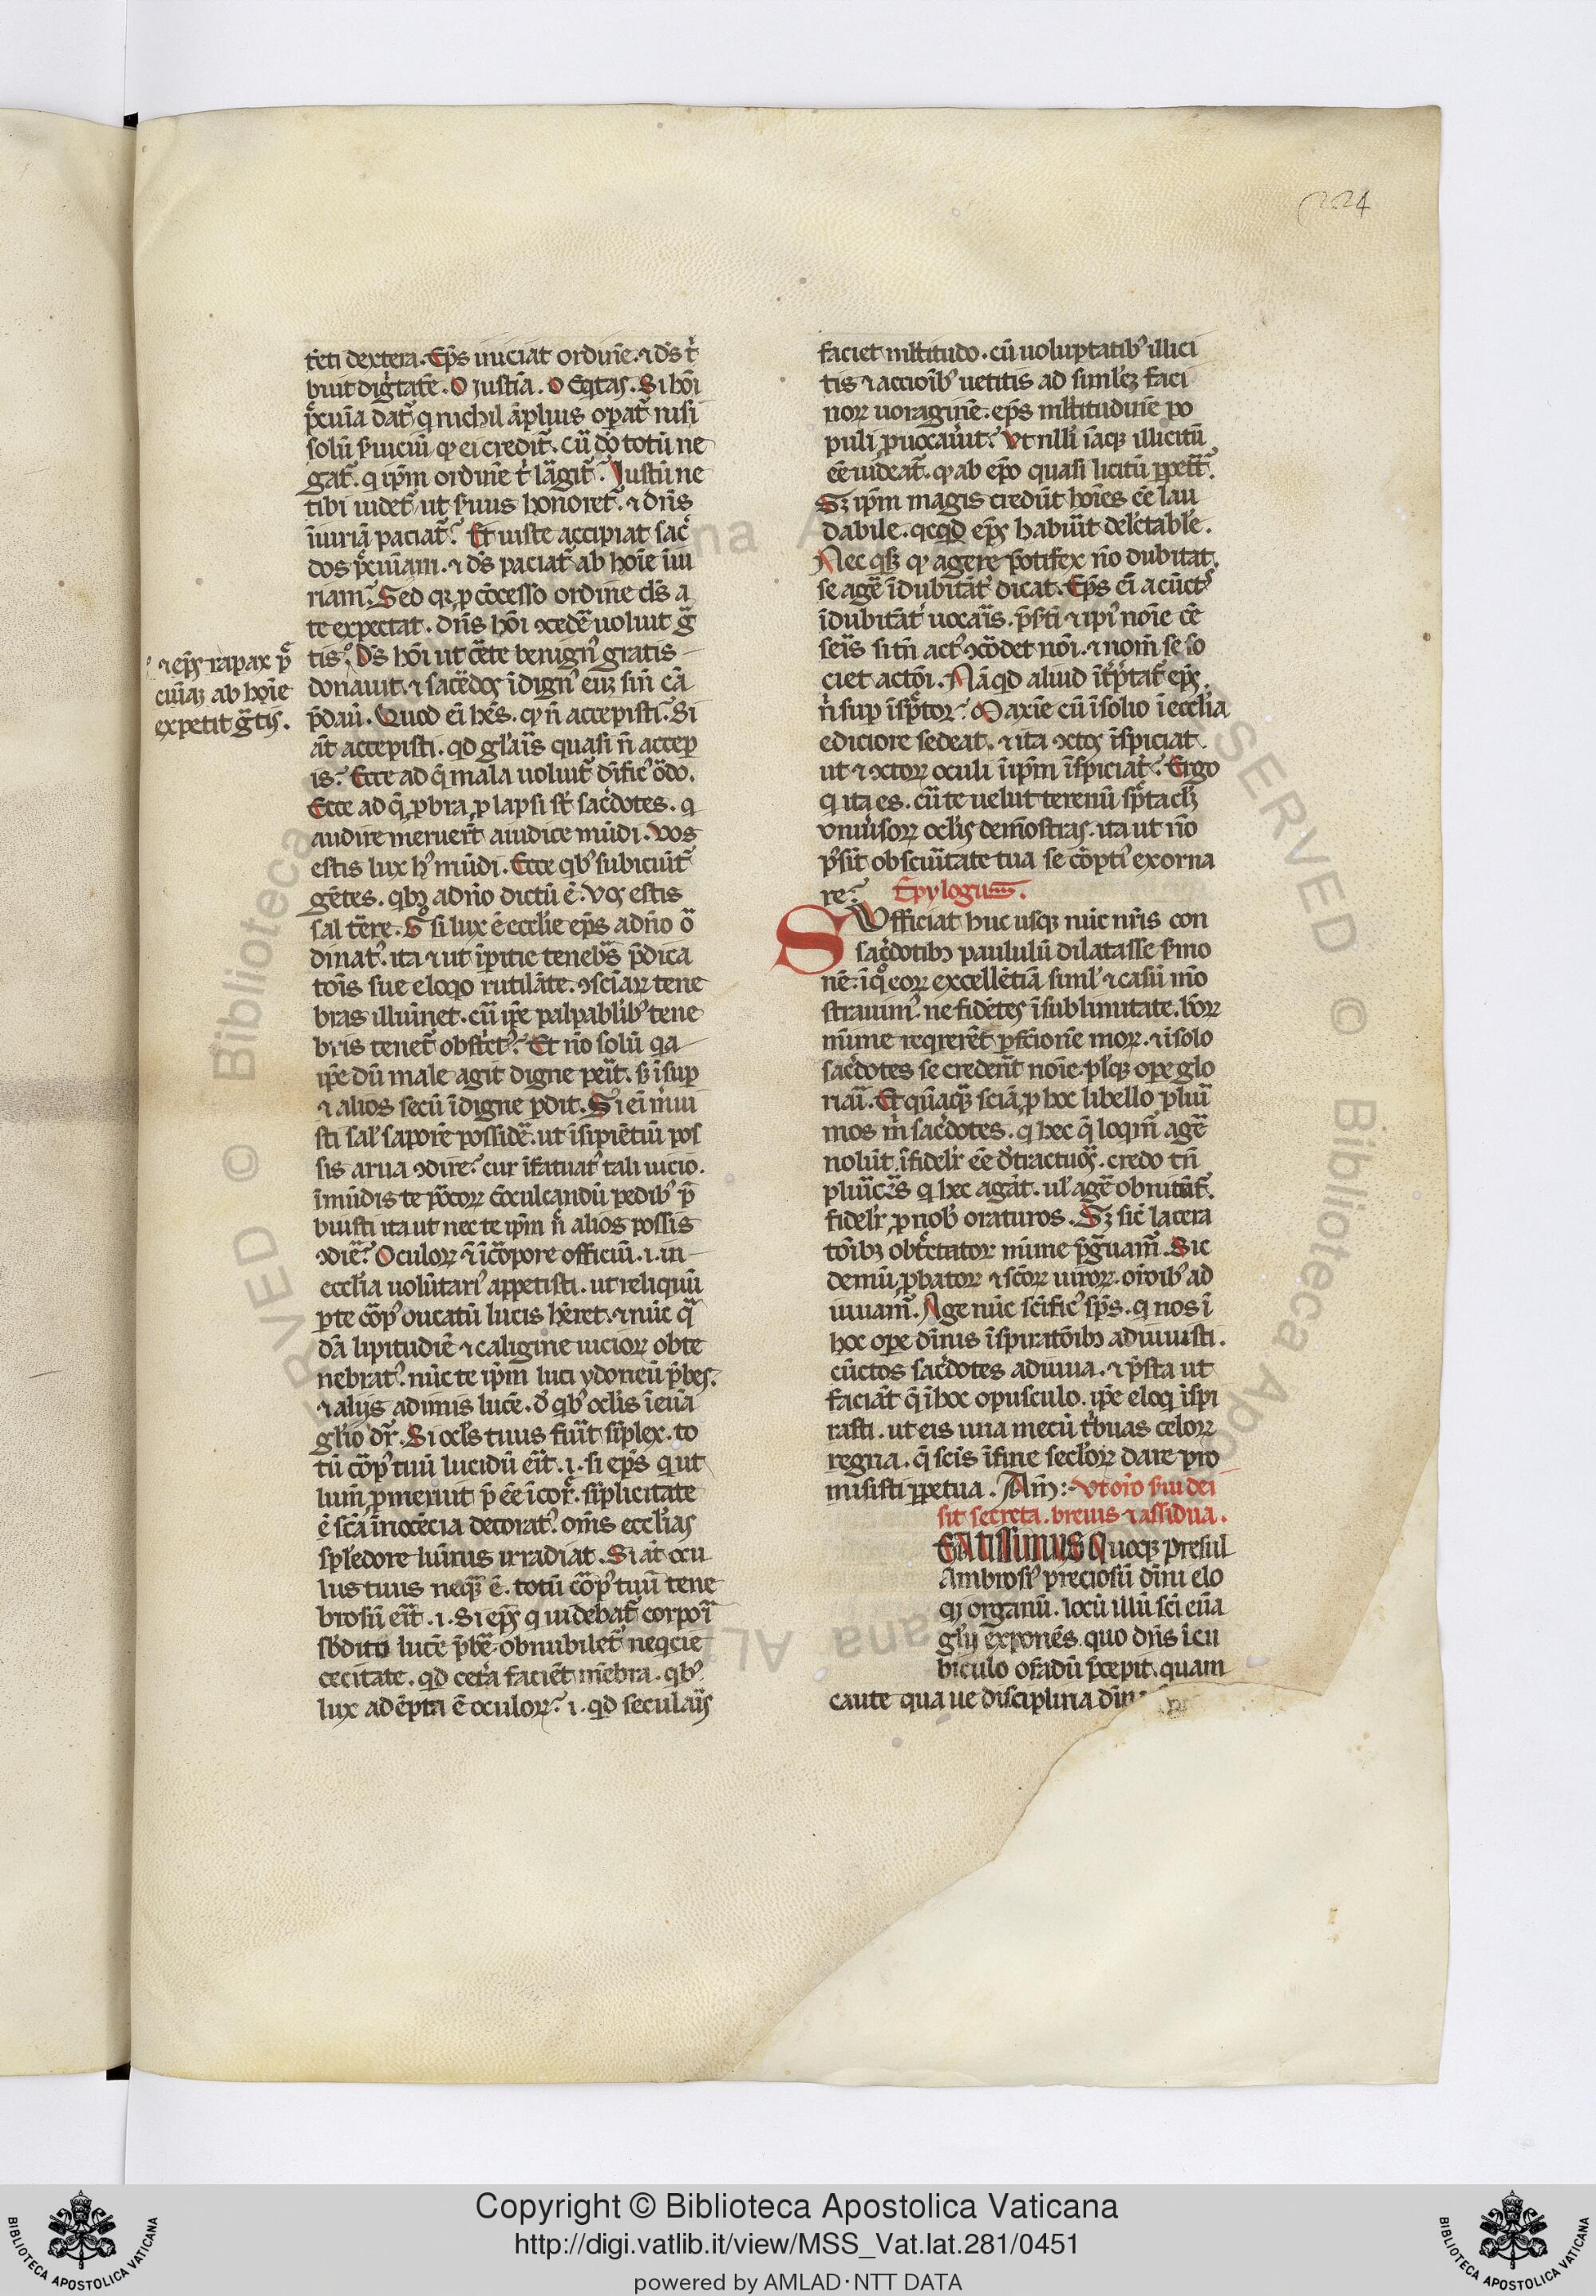 224
teti dextera. Ep̄s iniciat ordinē. ⁊ d̄s t̑
buit digtatē. O iustia. O Eqtas. Si hoi
pcunia dat̄ q nichil āplius opat̄ nisi
solū suiciū qꝫ ei credit̄. cū do totū ne
gat̄. q ip̄m ordinē t̑ lagit̄. Iustū ne
tibi uidet̄ ut suus honoret̄. ⁊ dn̄s
iniuriā paciat̄. Et iuste accipiat sac
dos pcuniam. ⁊ d̄s paciat̄ ab hoīe iniu
riam. Sed qꝛ p cōcesso ordine cl̄s a
te expectat. dn̄s hoi ↄcedē uoluit g̃
tis. D̄s hoi ut cete benign᷒ gratis
donauit. ⁊ sacedos īdign᷒ eiꝫ sīn cā
⁊ ep̄s rapax p̄
cuniaꝫ ab hoīe
expetit g̃tis.
p̄daū. Quod ei hēs. qꝫ n̄ accepisti. Si
āt accepisti. qd gl̄ais quasi n̄ accep
is. Ecce ad q̄ mala uoluit̄ dific᷒ odo.
Ecce ad q̄ pbra plapsi st̄ sacdotes. q
audire meruert̄ a iudice mūdi. Vos
estis lux h᷒ mūdi. Ecce qb᷒ subiciūt̄
gētes. qbꝫ a dn̄o dictū ē. Vos estis
sal terre. G̊ si lux ē eccl̄ie ep̄s a dn̄o o
dinat᷒. ita ⁊ ut īpitie tenebs p̄dica
tōis sue eloqo rutilāte. ↄsciarꝝ tene
bras illuīnet. cū ip̄e palpablib᷒ tene
bris tenet̄ obstet᷒. Et nō solū qa
ip̄e dū male agit digne peit. sꝫ īsup
⁊ alios secū īdigne pdit. Si ei
sti sal saporē posside. ut īsipiētiū pos
sis arua ↄdire. cur īfatuat᷒ tali uicio.
īmūdis te pocorꝝ cōculcandū pedib᷒ p̄
buisti ita ut nec te ip̄m n̄ alios possis
ↄdie. Oculorꝝ ei ī copore officiū .i. in
eccl̄ia uolūtari᷒ appetisti. ut reliquū
pte cop᷒ oucatū lucis heret. ⁊ nūc q̃
dā lipitudīe ⁊ caligine uiciorꝝ obte
nebrat᷒. nūc te ip̄m luci ydoneū p̄bes.
⁊ aliis adimis lucē. d̄ qb᷒ ocl̄is ī euā
gl̄io dr̄. Si ocl̄s tuus fuīt siplex. to
tū cop᷒ tuū lucidū eīt .i. si ep̄s q ut
lum̄ pmeruit p̄ eē ī cor. siplicitate
ē scā īnocēcia decorat᷒. om̄s eccl̄ias
splēdore luīnus irradiat. Si āt ocu
lus tuus neqꝫ ē. totū cop᷒ tuū tene
brosū eīt .i. Si ep̄s q uidebat̄ corpoi
sbditu lucē p̄be obnubilet̄ neqcie
cecitate. qd cet̑a faciēt mēbra. qb᷒
lux adēpta ē oculorꝝ. i. qd seculais
faciet ml̄titudo. cū uoluptatib᷒ illici
tis ⁊ accioīb᷒ uetitis ad simleꝫ faci
norꝝ uoraginē. ep̄s ml̄titudinē po
puli puocauit. Vt nlli īaqꝫ illicitū
eē uideat̄. qꝫ ab ep̄o quasi licitū ppett̄.
Sꝫ ip̄m magis credūt hoīes eē lau
dabile. qcqd ep̄s habuit delctable.
Nec qsꝫ qꝫ agere potifex nō dubitat.
se agē īdubitāt᷒ dicat. Ep̄s ei a cūct᷒
īdubitāt᷒ uocais. p̄sti ⁊ ipi᷒ noīe cē
seis si tn̄ act᷒ ↄcodet noi. ⁊ nom̄ se so
ciet actōi. Nā qd aliud īt̑p̄tat̄ ep̄s.
n̄ sup īsp̄tor. Maxīe cū ī solio ī eccl̄ia
ediciore sedeat. ⁊ ita ↄctos īspiciat.
ut ⁊ ↄctorꝝ oculi ī ip̄m īspiciāt. Ergo
q ita es. cū te uelut terenū sp̄taclꝫ
vniusorꝝ ocl̄is demōstras. ita ut nō
p̄sit obscuitate tua se cōpti᷒ exorna
re. Epyloguꝫ.
SVfficiat huc usqꝫ nūc nr̄is con
sacdotibꝫ paululū dilatasse smo
nē. ī qo eorꝝ excellētiā siml̄ ⁊ casū mō
strauim᷒. ne fidētes ī sublimitate. horꝝ
mīme reqrerēt pfēcionē morꝝ. ⁊ ī solo
sacdotes se credent noīe. plqꝫ ope glo
riaī. Et qn̄aqꝫ sciā p hoc libello pluī
mos m̄ sacdotes. q hec q̄ loqm̄ agē
nolūt īfidelr̄ eē dtractuos. credo tn̄
pluīcs q hec agāt. ul̄ agē obnitūt̄.
fidelr̄ p nob̄ oraturos. Sꝫ sic̄ lacera
tōibꝫ obtctatorꝝ mīme p̄g̃uam̄. Sic
demū pbatorꝝ ⁊ scorꝝ uirorꝝ. orōib᷒ ad
iuuam̄. Age nūc scific᷒ sp̄s. q nos ī
hoc ope dinis īspiratōibꝫ adiuuisti.
cūctos sacdotes adiuua. ⁊ p̄sta ut
faciāt q̄ ī hoc opusculo. ip̄e eloq īspi
rasti. ut eis una mecū tbuas celorꝝ
regna. q̄ scis ī fine seclorꝝ dare pro
misisti ppetua. Am̄: Vt oīo sui dei
sit secreta. breuis ⁊ assidua.
EATISSIMUS Quoqꝫ presul
Ambrosi᷒ preciosū dini elo
qij organū. locū illū sci euā
glij exponēs. quo dn̄s ī cu
biculo oradū p̄cepit. quam
caute qua ue disciplina
Copyright © Biblioteca Apostolica Vaticana
http://digi.vatlib.it/view/MSS_Vat.lat.281/0451
powered by AMLAD·NTT DATA